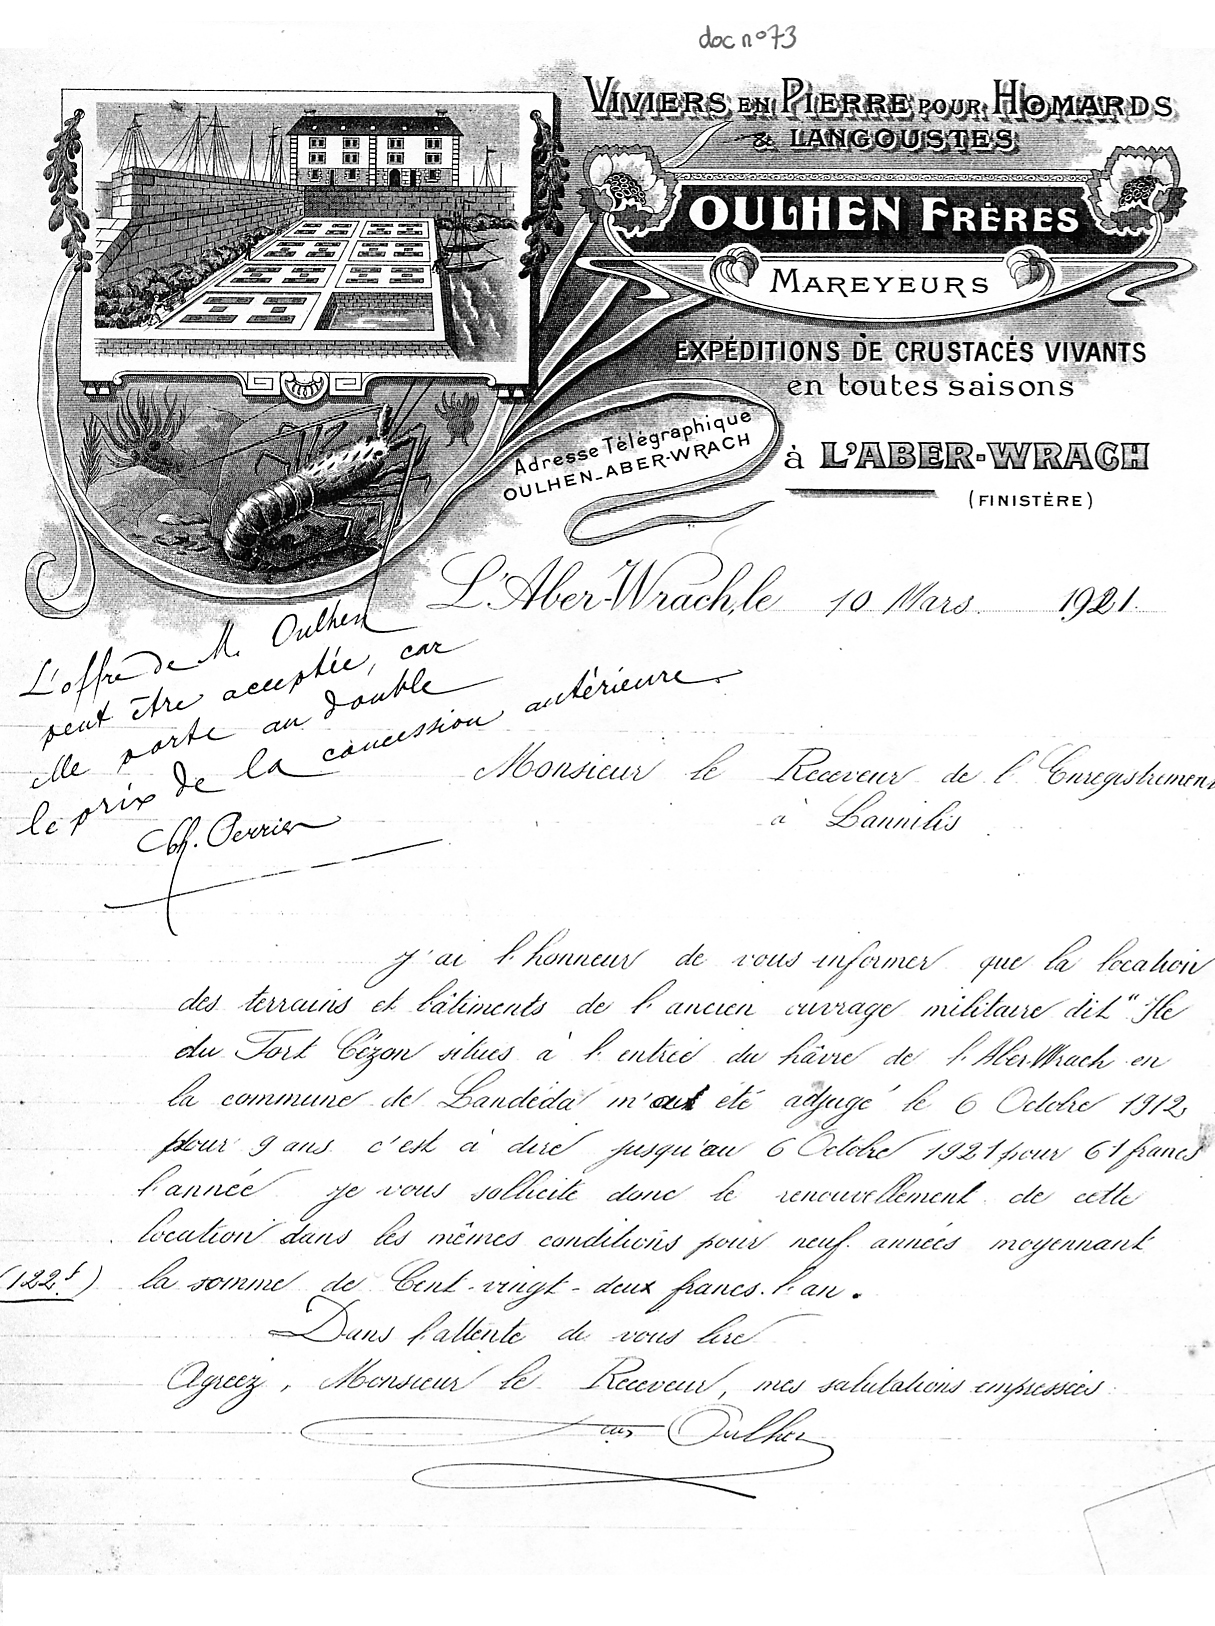 doc n° 73
VIVIERS EN PIERRE POUR HOMARDS
& LANGOUSTES
OULHEN FRÈRES
MAREYEURS
EXPÉDITIONS DE CRUSTACÉS VIVANTS
en toutes saisons
Adresse Télégraphique
OULHEN-ABER-WRACH
à L'ABER-WRACH
(FINISTÈRE)
L'Aber-Wrach, le 10 Mars 1921.
L'offre de M. Oulhen
peut être acceptée, car
elle porte au double
le prix de la concession antérieure.
Ch. Perrier
Monsieur le Receveur de l'Enregistrement
à Lannilis
J'ai l'honneur de vous informer que la location
des terrains et bâtiments de l'ancien ouvrage militaire dit "Ile
du Fort Cézon situés à l'entrée du hâvre de l'Aber-Wrach en
la commune de Landéda m' été adjugé le 6 Octobre 1912
pour 9 ans c'est à dire jusqu'au 6 Octobre 1921 pour 61 francs
l'année je vous sollicite donc le renouvellement de cette
location dans les mêmes conditions pour neuf années moyennant
(122f) la somme de Cent-vingt-deux francs l'an.
Dans l'attente de vous lire
Agréez, Monsieur le Receveur, mes salutations empressées
Oulhen